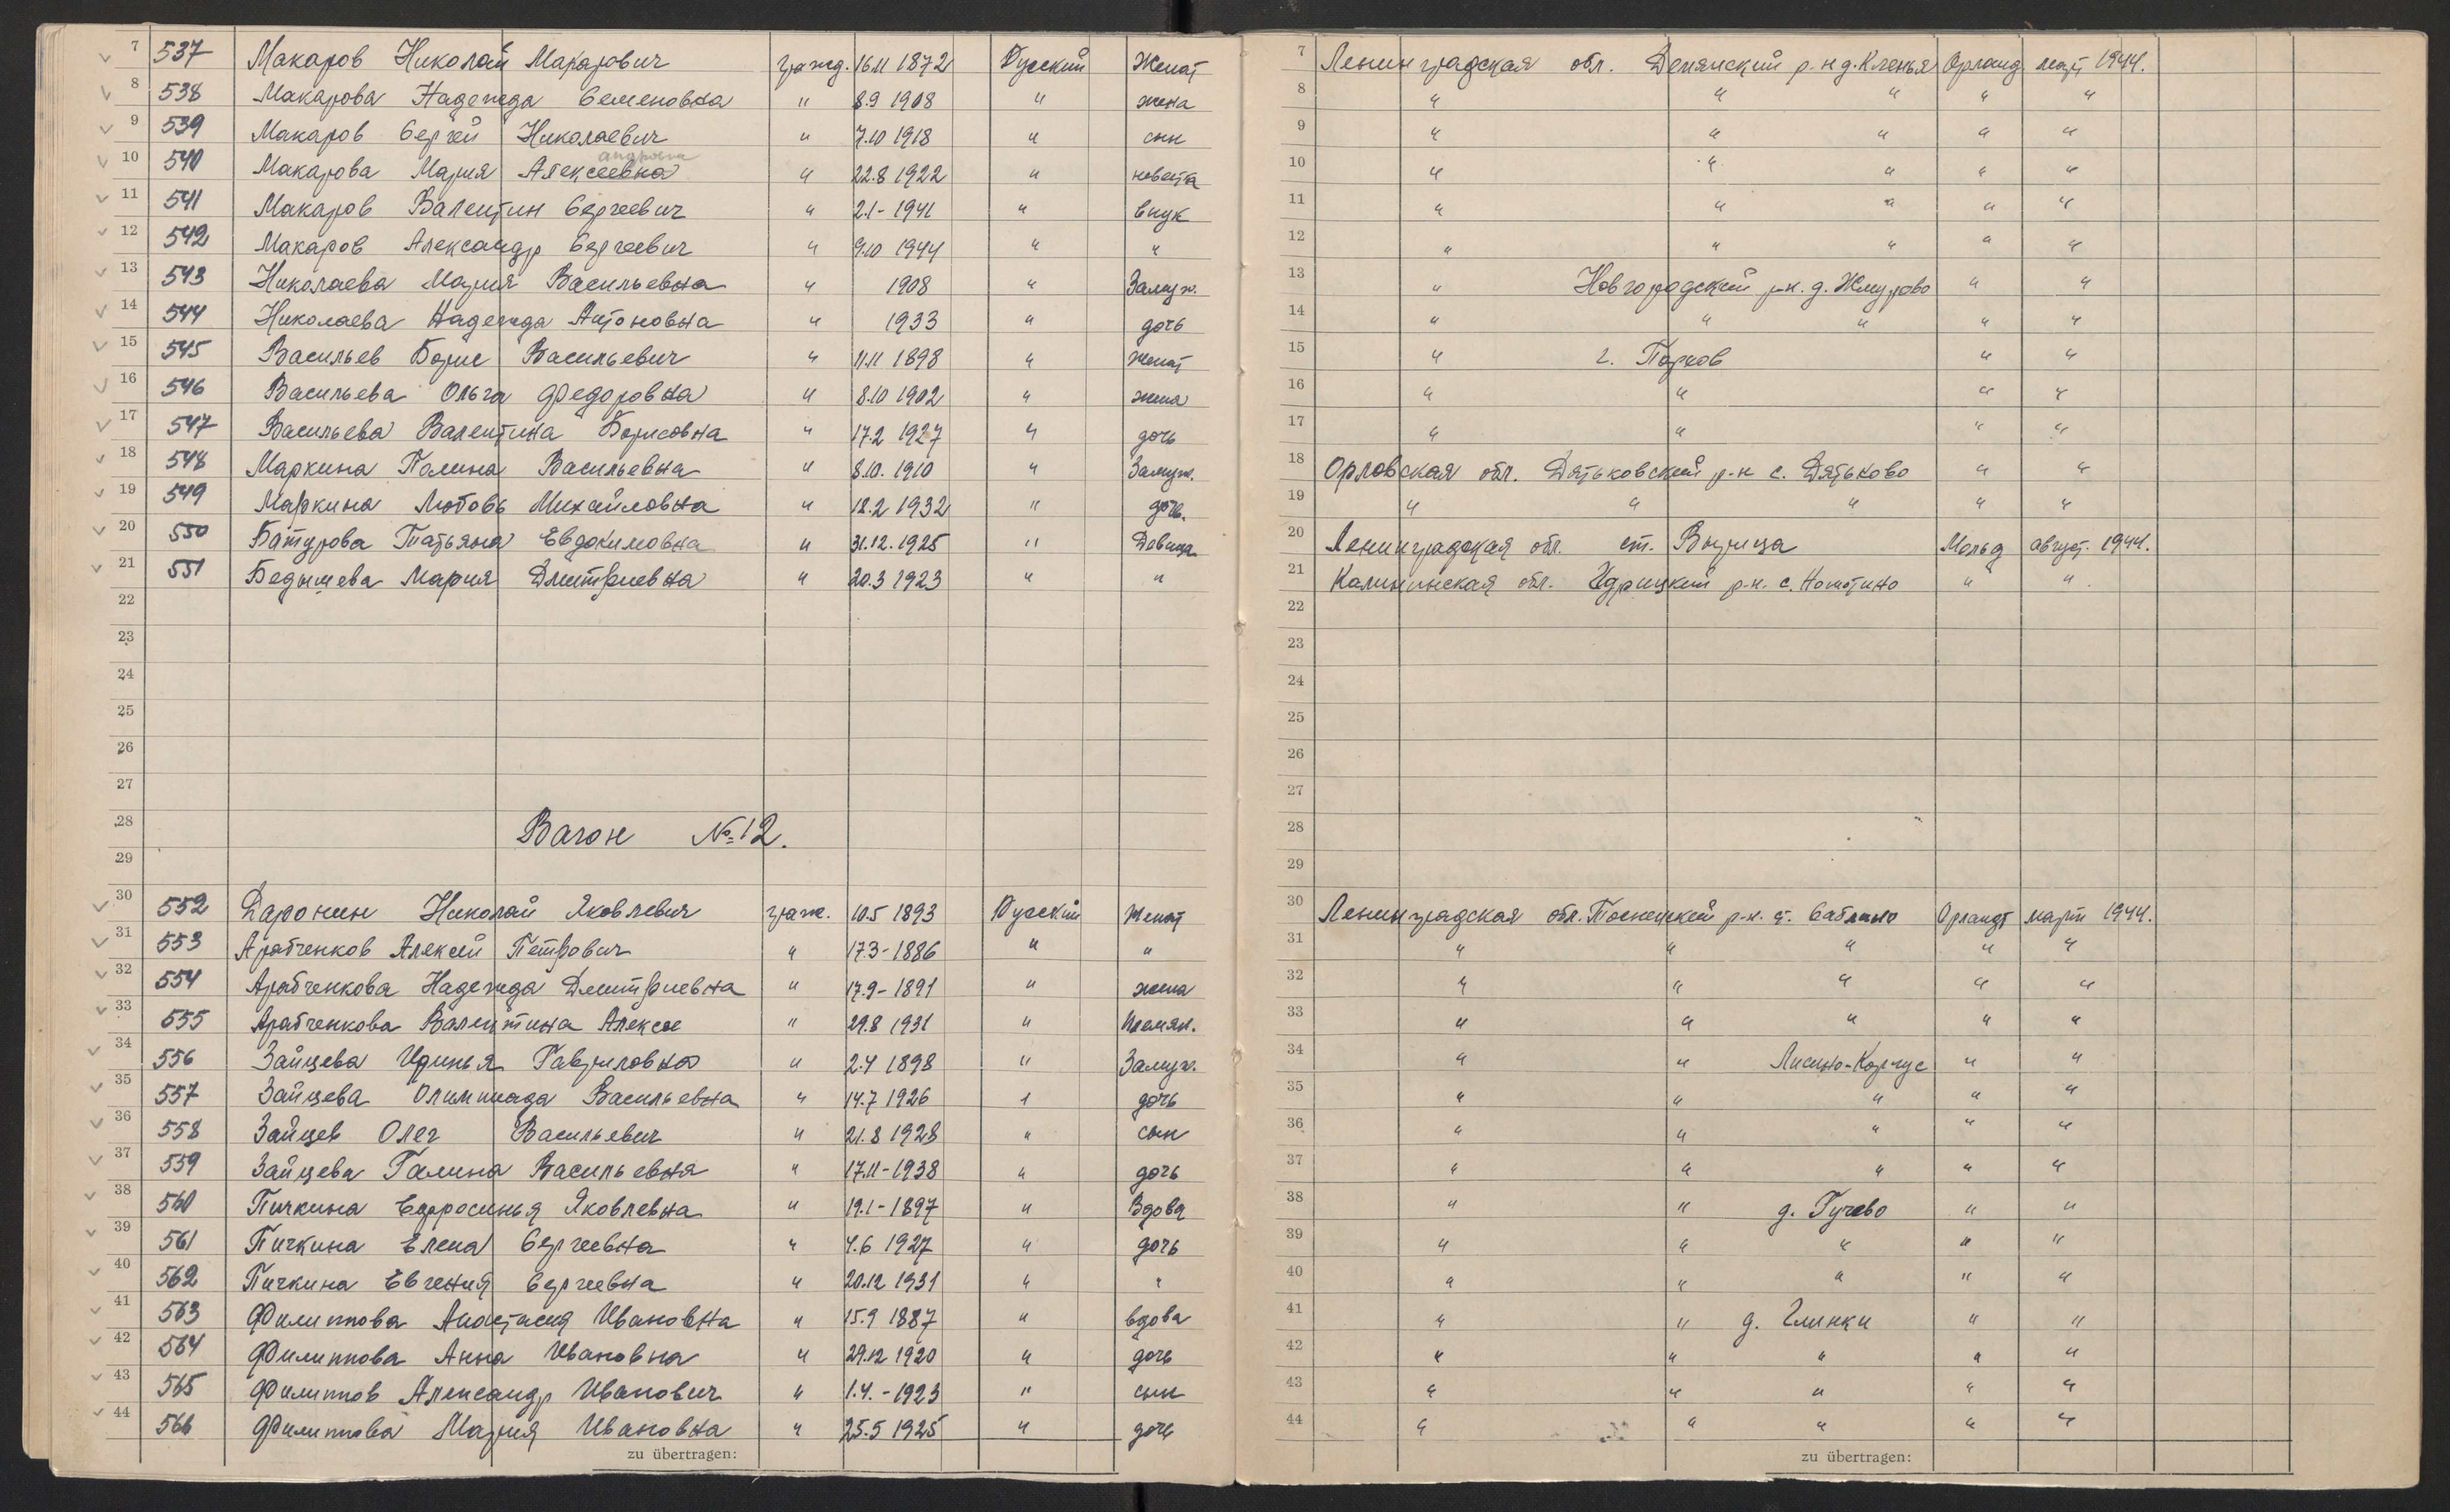 7 537 Макаров Николай Макарович гражд. 16.11 1872 Русский Женат 7 Ленинградская обл. Демянский р-н д. Кленья Орланд март 1944.
8 538 Макарова Надежда Семеновна " 8.9 1908 " жена 8 " " " " "
9 539 Макаров Сергей Николаевич " 7.10 1918 " сын 9 " " " " "
андровна
10 540 Макарова Мария Алексеевна " 22.8 1922 " невестка 10 " " " " "
11 541 Макаров Валентин Сергеевич " 2.1- 1941 " внук 11 " " " " "
12 542 Макаров Александр Сергеевич " 9.10 1944 " " 12 " " " " "
13 543 Николаева Мария Васильевна " 1908 " Замуж. 13 " Новгородский р-н. д. Жмурово " "
14 544 Николаева Надежда Антоновна " 1933 " дочь 14 " " " " "
15 545 Васильев Борис Васильевич " 11.11 1898 " Женат 15 " г. Порхов " "
16 546 Васильева Ольга Федоровна " 8.10 1902 " жена 16 " " " "
17 547 Васильева Валентина Борисовна " 17.2 1927 " дочь 17 " " " "
18 548 Маркина Полина Васильевна " 8.10. 1910 " Замуж. 18 Орловская обл. Дятьковский р-н с. Дятьково " "
19 549 Маркина Любовь Михайловна " 12.2 1932 " дочь. 19 " " " " "
20 550 Батурова Татьяна Евдокимовна " 31.12. 1925 " Девица 20 Ленинградская обл. ст. Вырица Мольд август. 1944.
21 551 Бедышева Мария Дмитриевна " 20.3 1923 " " 21 Калининская обл. Идрицкий р-н. с. " "
22 22
23 23
24 24
25 25
26 26
27 27
28 Вагон № 12. 28
29 29
30 552 Даронин Николай Яковлевич граж. 10.5 1893 Русский Женат 30 Ленинградская обл. Тосненский р-н. Саблино Орландт март 1944.
31 553 Арабченков Алексей Петрович " 17.3-1886 " " 31 " " " " "
32 554 Арабченкова Надежда Дмитриевна " 17.9-1891 " жена 32 " " " " "
33 555 Арабченкова Валентина Алексе " 29.8 1931 " племян. 33 " " " " "
34 556 Зайцева Гавриловна " 2.4 1898 " Замуж. 34 " " Лисино-Корпус " "
35 557 Зайцева Олимпиада Васильевна " 14.7 1926 " дочь 35 " " " " "
36 558 Зайцев Олег Васильевич " 21.8 1928 " сын 36 " " " " "
37 559 Зайцева Галина Васильевна " 17.11-1938 " дочь 37 " " " " "
38 560 Пичкина Ефросинья Яковлевна " 19.1-1897 " Вдова 38 " " д. Гучево " "
39 561 Пичкина Елена Сергеевна " 4.6 1927 " дочь 39 " " " " "
40 562 Пичкина Евгения Сергеевна " 20.12 1931 " " 40 " " " " "
41 563 Филиппова Анастасия Ивановна " 15.9 1887 " вдова 41 " " д. Глинки " "
42 564 Филиппова Анна Ивановна " 29.12 1920 " дочь 42 " " " " "
43 565 Филиппов Александр Иванович " 1.4.-1923 " сын 43 " " " " "
44 566 Филиппова Мария Ивановна " 25.5 1925 " дочь 44 " " " " "
zu übertragen: zu übertragen: